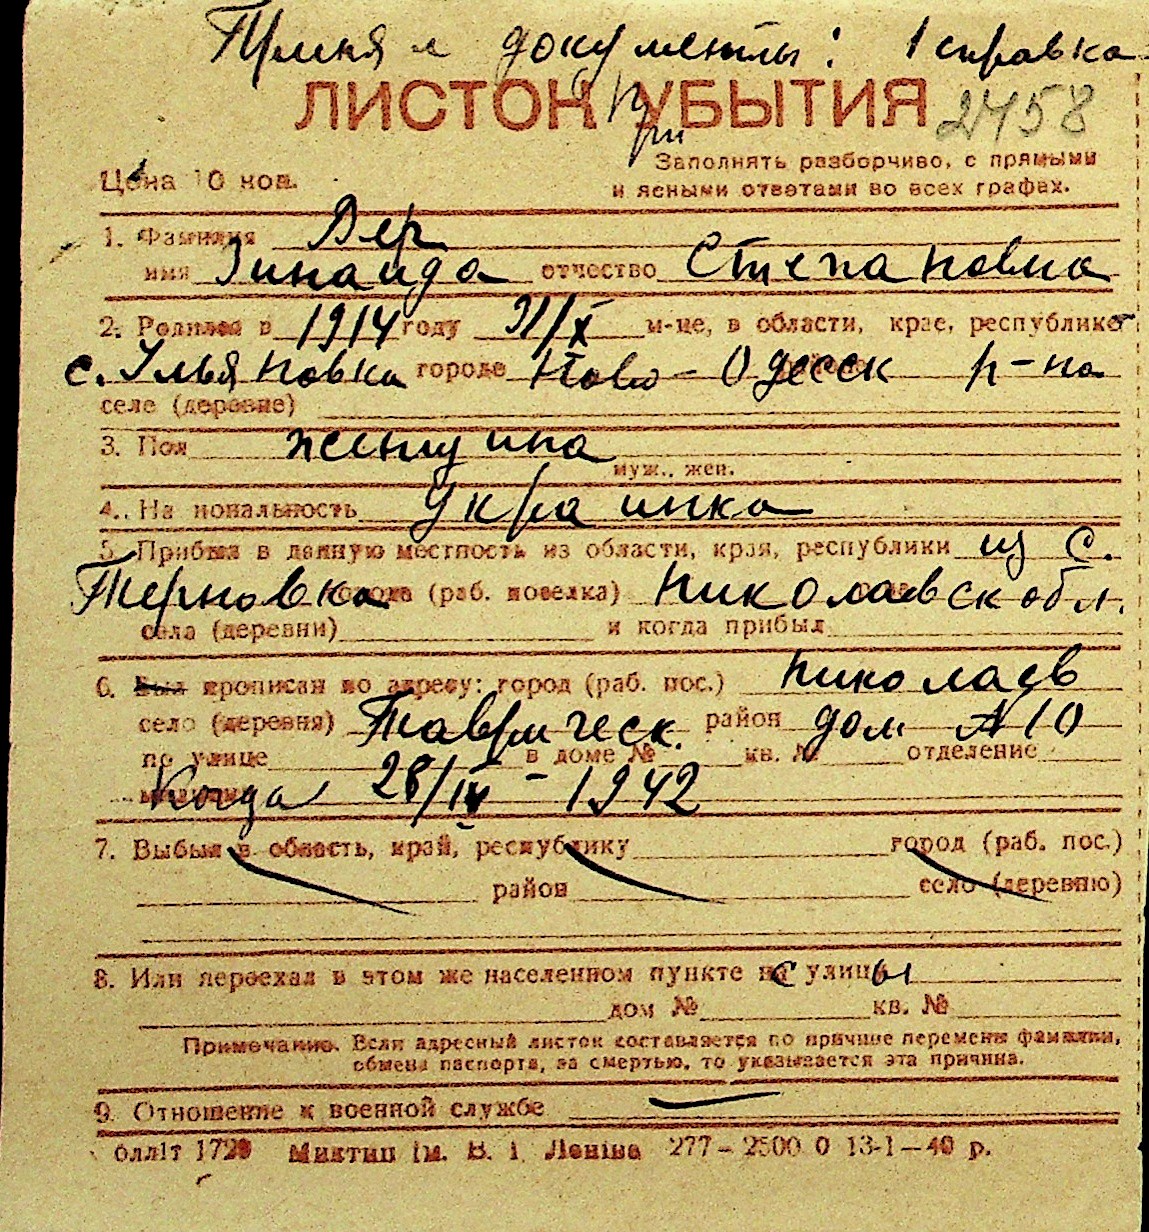 Принял документы: 1 справка
ЛИСТОК УБЫТИЯ 2458
Цена 10 коп.
Заполнять разборчиво, с прямыми
и ясными ответами во всех графах.
1. Фамилия Дер
имя Зинаида отчество Степановна
2. Родился в 1914 году 21/X м-це, в области, крае, республике
с. Ульяновка городе Ново-Одесск р-на
селе (деревне)
3. Пол женщина
муж., жен.
4. Национальность Украинка
5. Прибыл в данную местность из области, края, республики из с.
Терновка города (раб. поселка) Николаевск обл.
села (деревни) и когда прибыл
6. Был прописан по адресу: город (раб. пос.) Николаев
село (деревня) Таврическ. район дом № 10
по улице в доме № кв. № отделение
милиции Когда 28/IV - 1942
7. Выбыл в область, край, республику город (раб. пос.)
район село (деревню)
8. Или переехал в этом же населенном пункте с улицы
дом № кв. №
Примечание. Если адресный листок составляется по причине перемены фамилии,
обмена паспорта, за смертью, то указывается эта причина.
9. Отношение к военной службе
блліт 1720 Миктип ім. В. І. Леніна 277-2500 0 13-1-40 р.